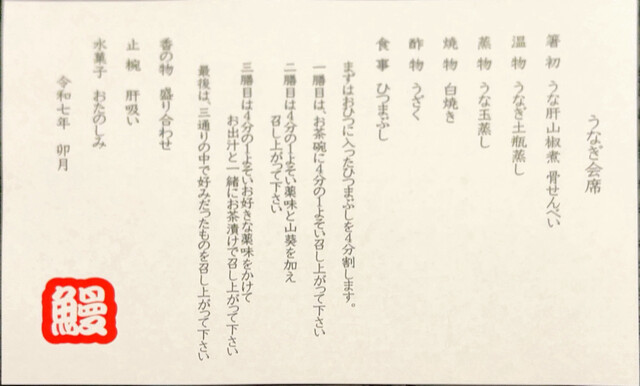 うなぎ会席
箸初 うな肝山椒煮 骨せんべい
温物 うなぎ土瓶蒸し
蒸物 うな玉蒸し
焼物 白焼き
酢物 うざく
食事 ひつまぶし
まずはおひつに入ったひつまぶしを4分割します。
一膳目は、お茶碗に4分の1よそい召し上がって下さい
二膳目は4分の1よそい薬味と山葵を加え
召し上がって下さい。
三膳目は4分の1よそいお好きな薬味をかけて
お出汁と一緒にお茶漬けで召し上がって下さい
最後は、三通りの中で好みだったものを召し上がって下さい
香の物 盛り合わせ
止椀 肝吸い
水菓子 おたのしみ
令和七年 卯月
鰻